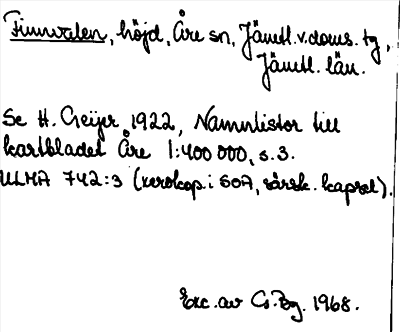 Finnvalen, höjd, Åre sn, Jämtl. v. doms. tg,
Jämtl. län.
Se H. Geijer 1922, Namnlistor till
kartbladet Åre 1:400 000, s. 3.
ULMA 742:3 (xerokop. i SOA, särsk. kapsel).
Exc. av Cs. Bg. 1968.